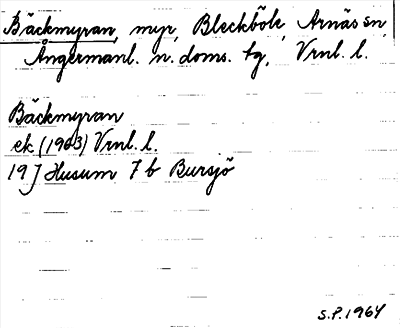 Bäckmyran, myr, Bleckböle, Arnäs sn,
Ångermanl. n. doms. tg, Vrnl. l.
Bäckmyran
ek (1963) Vrnl. l.
19 J Husum 7 b Bursjö
S.P. 1964